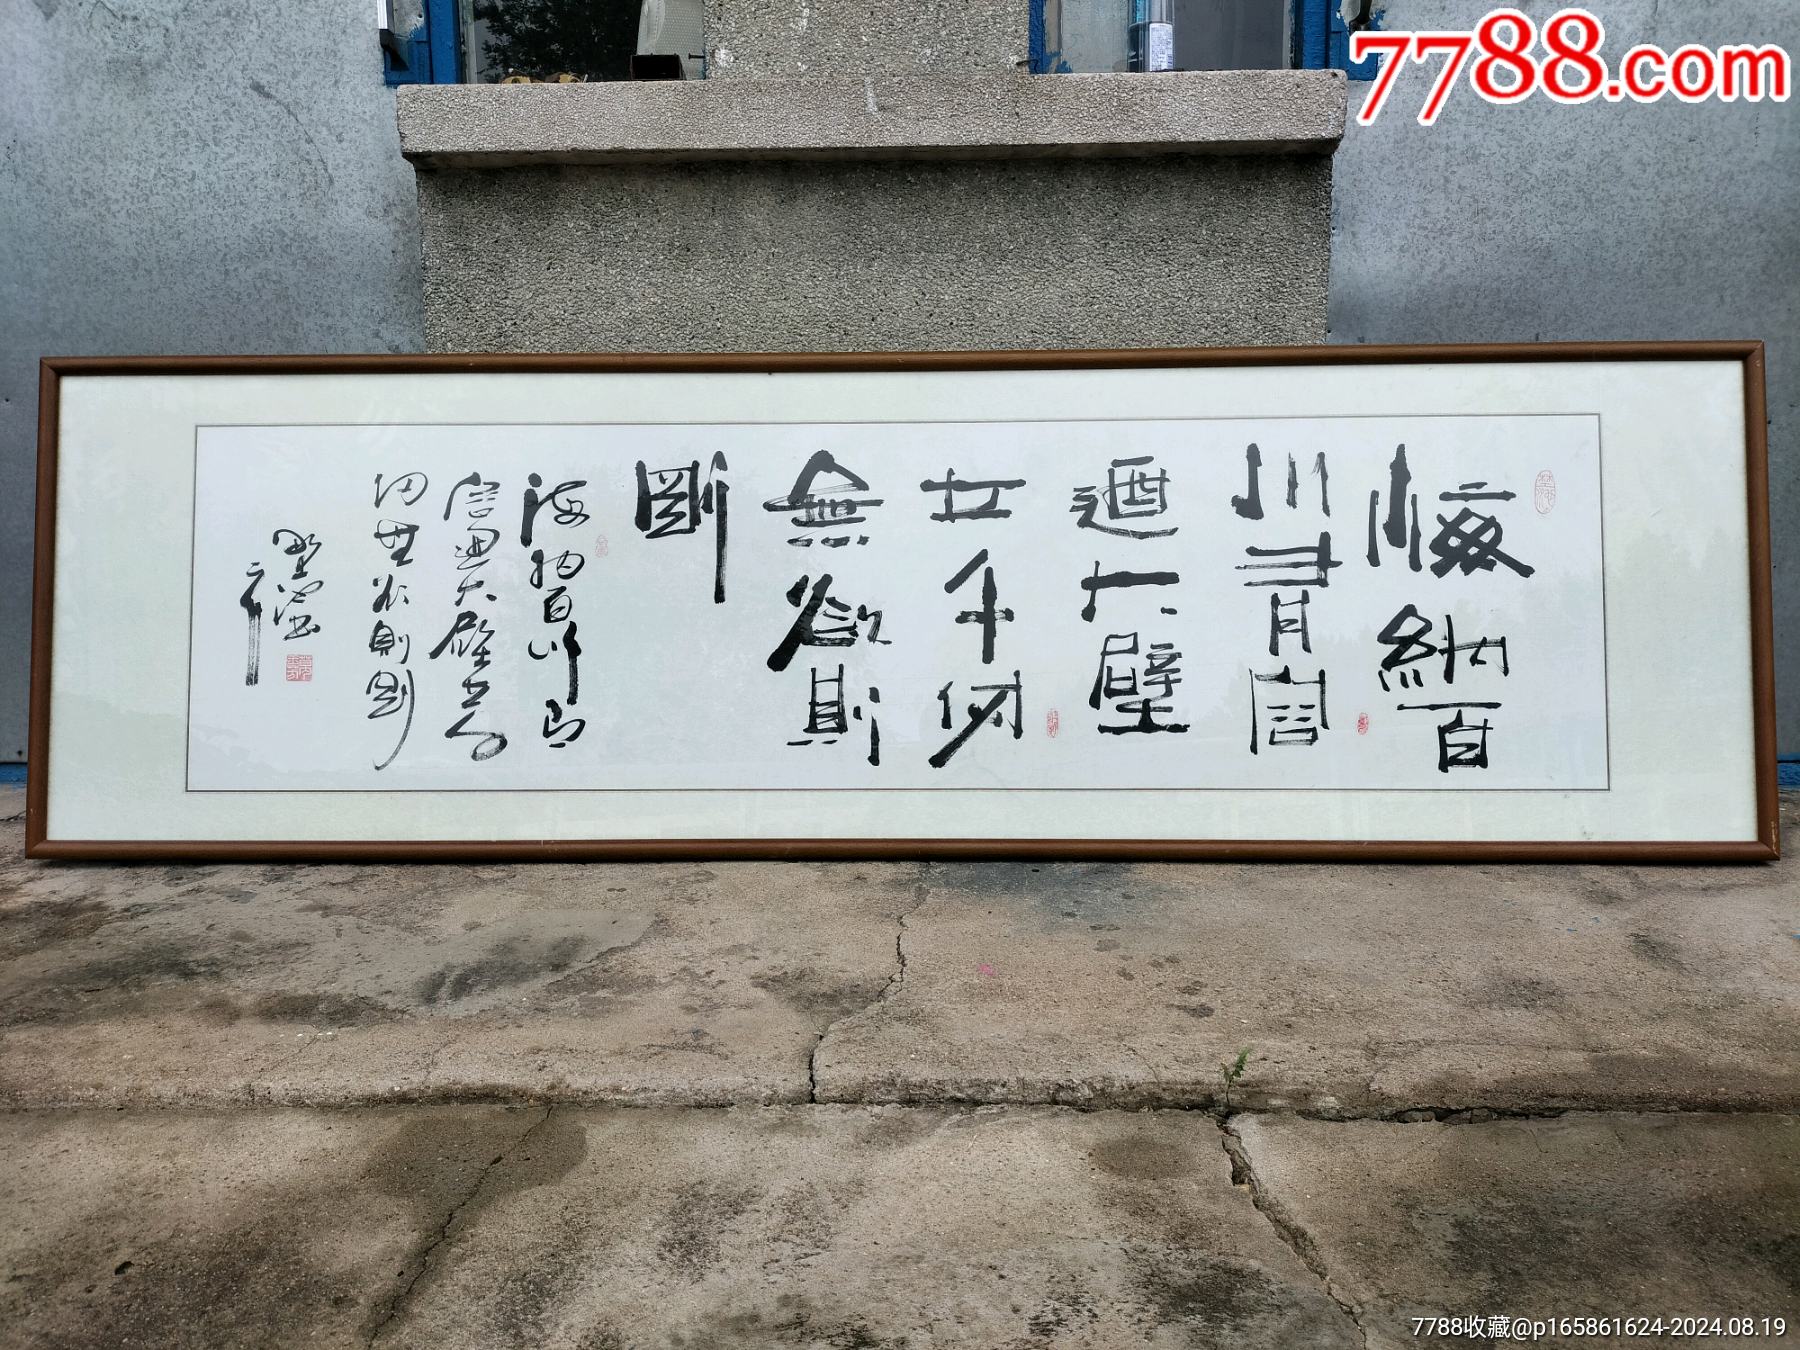 7788.com
海納百
川有容
迺大壁
立千仞
無欲則
剛
海納百川有
容迺大壁立千
仞無欲則剛
7788收藏@p165861624-2024.08.19